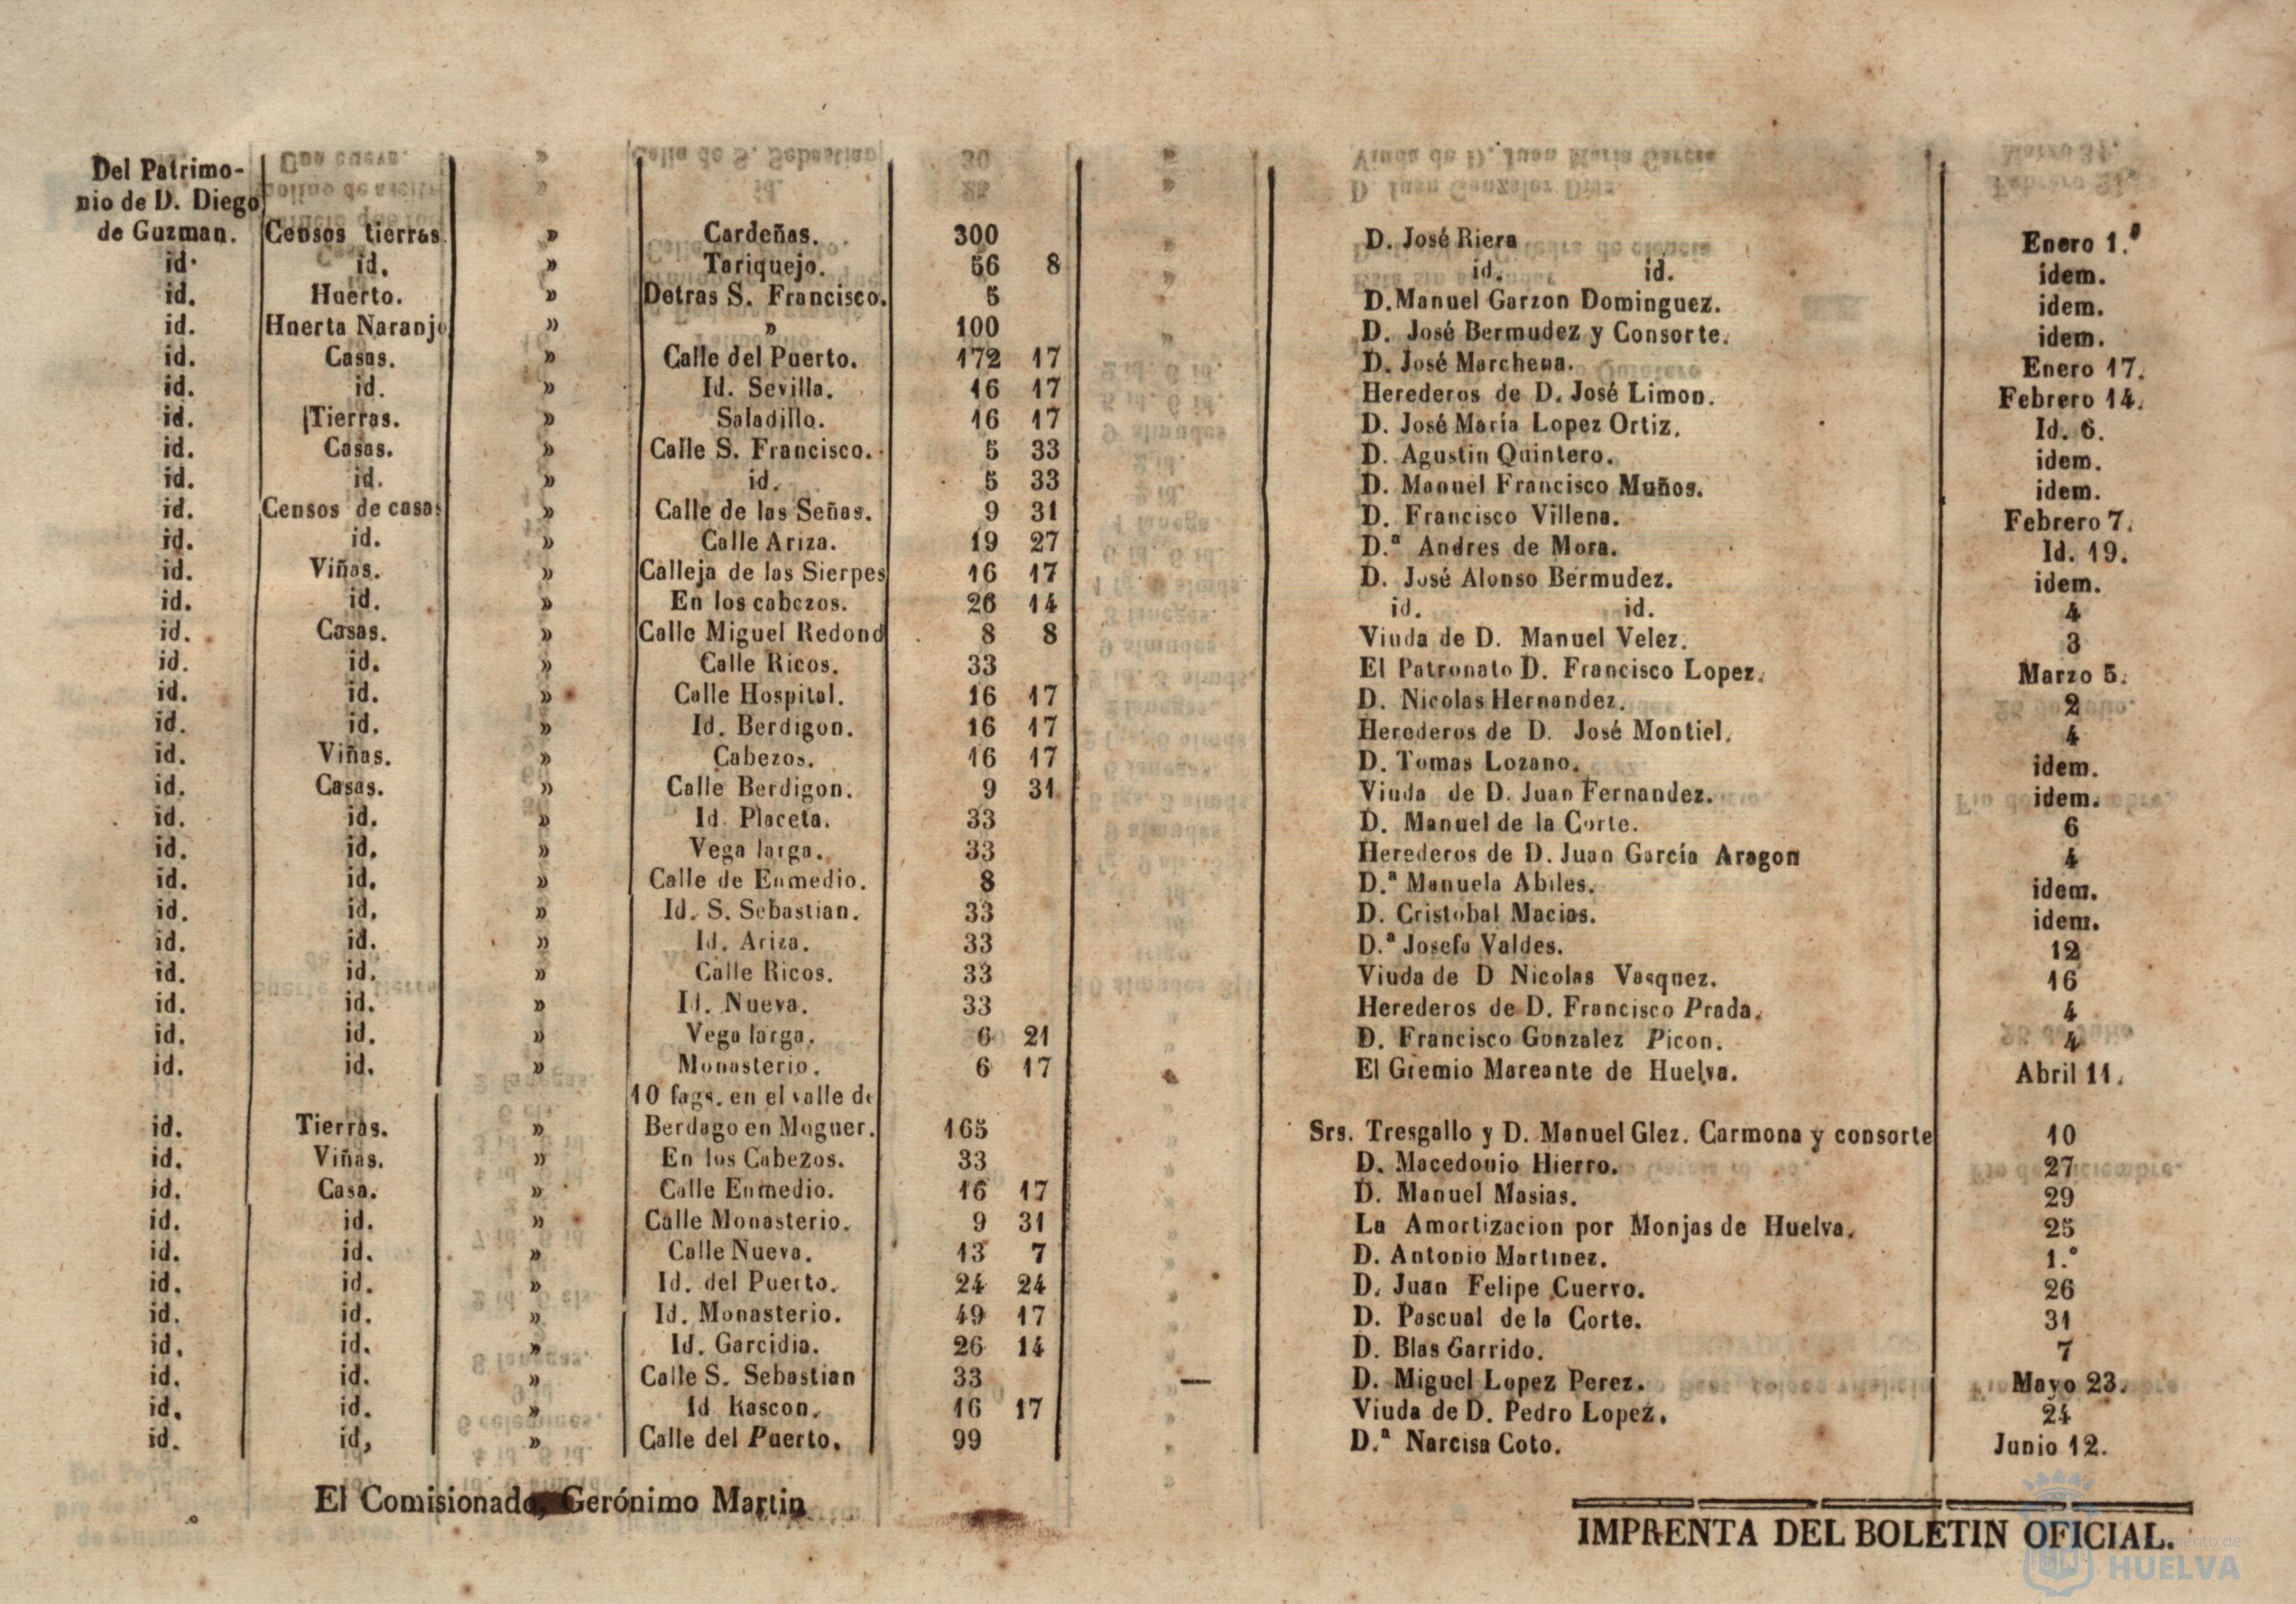 Del Patrimo-
nio de D. Diego
de Guzman. Censos tierras. » Cardeñas. 300 D. José Riera Enero 1.º
id. id. » Tariquejo. 56 8 id. id. idem.
id. Huerto. » Detras S. Francisco. 5 D. Manuel Garzon Dominguez. idem.
id. Huerta Naranjo » » 100 D. José Bermudez y Consorte. idem.
id. Casas. » Calle del Puerto. 172 17 D. José Marchena. Enero 17.
id. id. » Id. Sevilla. 16 17 Herederos de D. José Limon. Febrero 14.
id. Tierras. » Saladillo. 16 17 D. José María Lopez Ortiz. Id. 6.
id. Casas. » Calle S. Francisco. 5 33 D. Agustin Quintero. idem.
id. id. » id. 5 33 D. Manuel Francisco Muños. idem.
id. Censos de casas » Calle de las Señas. 9 31 D. Francisco Villena. Febrero 7.
id. id. » Calle Ariza. 19 27 D.ª Andres de Mora. Id. 19.
id. Viñas. » Calleja de las Sierpes 16 17 D. José Alonso Bermudez. idem.
id. id. » En los cabezos. 26 14 id. id. 4
id. Casas. » Calle Miguel Redond 8 8 Viuda de D. Manuel Velez. 3
id. id. » Calle Ricos. 33 El Patronato D. Francisco Lopez. Marzo 5.
id. id. » Calle Hospital. 16 17 D. Nicolas Hernandez. 2
id. id. » Id. Berdigon. 16 17 Herederos de D. José Montiel. 4
id. Viñas. » Cabezos. 16 17 D. Tomas Lozano. idem.
id. Casas. » Calle Berdigon. 9 31 Viuda de D. Juan Fernandez. idem.
id. id. » Id. Placeta. 33 D. Manuel de la Corte. 6
id. id. » Vega larga. 33 Herederos de D. Juan García Aragon 4
id. id. » Calle de Enmedio. 8 D.ª Manuela Abiles. idem.
id. id. » Id. S. Sebastian. 33 D. Cristobal Macias. idem.
id. id. » Id. Ariza. 33 D.ª Josefa Valdes. 12
id. id. » Calle Ricos. 33 Viuda de D Nicolas Vasquez. 16
id. id. » Id. Nueva. 33 Herederos de D. Francisco Prada. 4
id. id. » Vega larga. 6 21 D. Francisco Gonzalez Picon. 4
id. id. » Monasterio. 6 17 El Gremio Mareante de Huelva. Abril 11.
10 fags. en el valle de
id. Tierras. » Berdago en Moguer. 165 Srs. Tresgallo y D. Manuel Glez. Carmona y consorte 10
id. Viñas. » En los Cabezos. 33 D. Macedonio Hierro. 27
id. Casa. » Calle Enmedio. 16 17 D. Manuel Masias. 29
id. id. » Calle Monasterio. 9 31 La Amortizacion por Monjas de Huelva. 25
id. id. » Calle Nueva. 13 7 D. Antonio Martinez. 1.º
id. id. » Id. del Puerto. 24 24 D. Juan Felipe Cuervo. 26
id. id. » Id. Monasterio. 49 17 D. Pascual de la Corte. 31
id. id. » Id. Garcidia. 26 14 D. Blas Garrido. 7
id. id. » Calle S. Sebastian 33 D. Miguel Lopez Perez. Mayo 23.
id. id. » Id Rascon. 16 17 Viuda de D. Pedro Lopez. 24
id. id, » Calle del Puerto. 99 D.ª Narcisa Coto. Junio 12.
El Comisionado, Gerónimo Martin
IMPRENTA DEL BOLETIN OFICIAL.
HUELVA